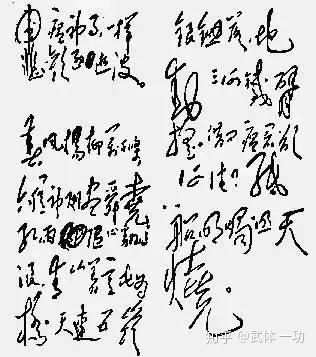 问瘟神事,一样
悲欢逐逝波。
春风杨柳万千条
六亿神州尽舜尧
红雨随心翻作
浪,青山着意化为
桥 天连五岭
银锄落,地
动三河铁臂
摇。借问瘟君欲
何往?纸
船明烛照天
烧。
知乎 @武体一功